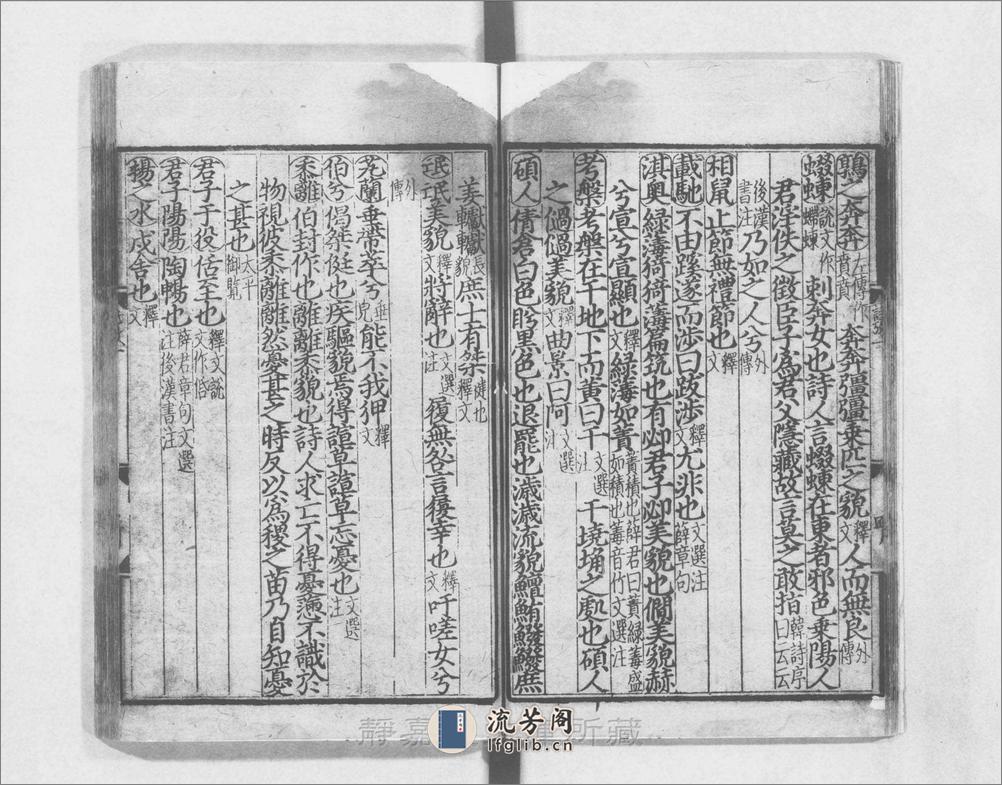 鶉之奔奔左傳作賁賁奔奔彊彊乗匹之貌釋文人而無良外傳
蝃蝀說文作螮蝀刺奔女也詩人言蝃蝀在東者邪色乗陽人
君淫佚之徵臣子為君父隱藏故言莫之敢指韓詩序曰云云
後漢書注乃如之人兮外傳
相鼠止節無禮節也釋文
載馳不由蹊遂而涉曰跋涉釋文尤非也文選注薛章句
淇奥緑䔭猗猗䔭萹筑也有邲君子邲美貌也僩美貌赫
兮宣兮宣顯也釋文緑䔭如簀簀積也薛君曰簀緑䔭盛如積也䔭音竹文選注
考槃考槃在干地下而黄曰干文選注干境埆之處也碩人
之過過美貌釋文曲景曰阿文選注
碩人倩倉曰色盼黒色也退罷也濊濊流貌鱣鮪鱍鱍庶
姜轙轙長貌庶士有桀徤也釋文
氓氓美貌釋文將辭也文選注履無咎言履幸也釋文吁嗟女兮
外傳
芄蘭垂帶萃兮垂皃能不我狎釋文
伯兮偈桀侹也疾驅貌焉得諼草諼草忘憂也文選注
黍離伯封作也離離黍貌也詩人求亡不得憂懣不識於
物視彼黍離離然憂甚之時反以為稷之苗乃自知憂
之甚也太平御覧
君子于役佸至也釋文說文作佸
君子陽陽陶暢也薛君章句文選注後漢書注
揚之水戍舍也釋文
流芳阁
lfglib.cn
靜嘉 所藏